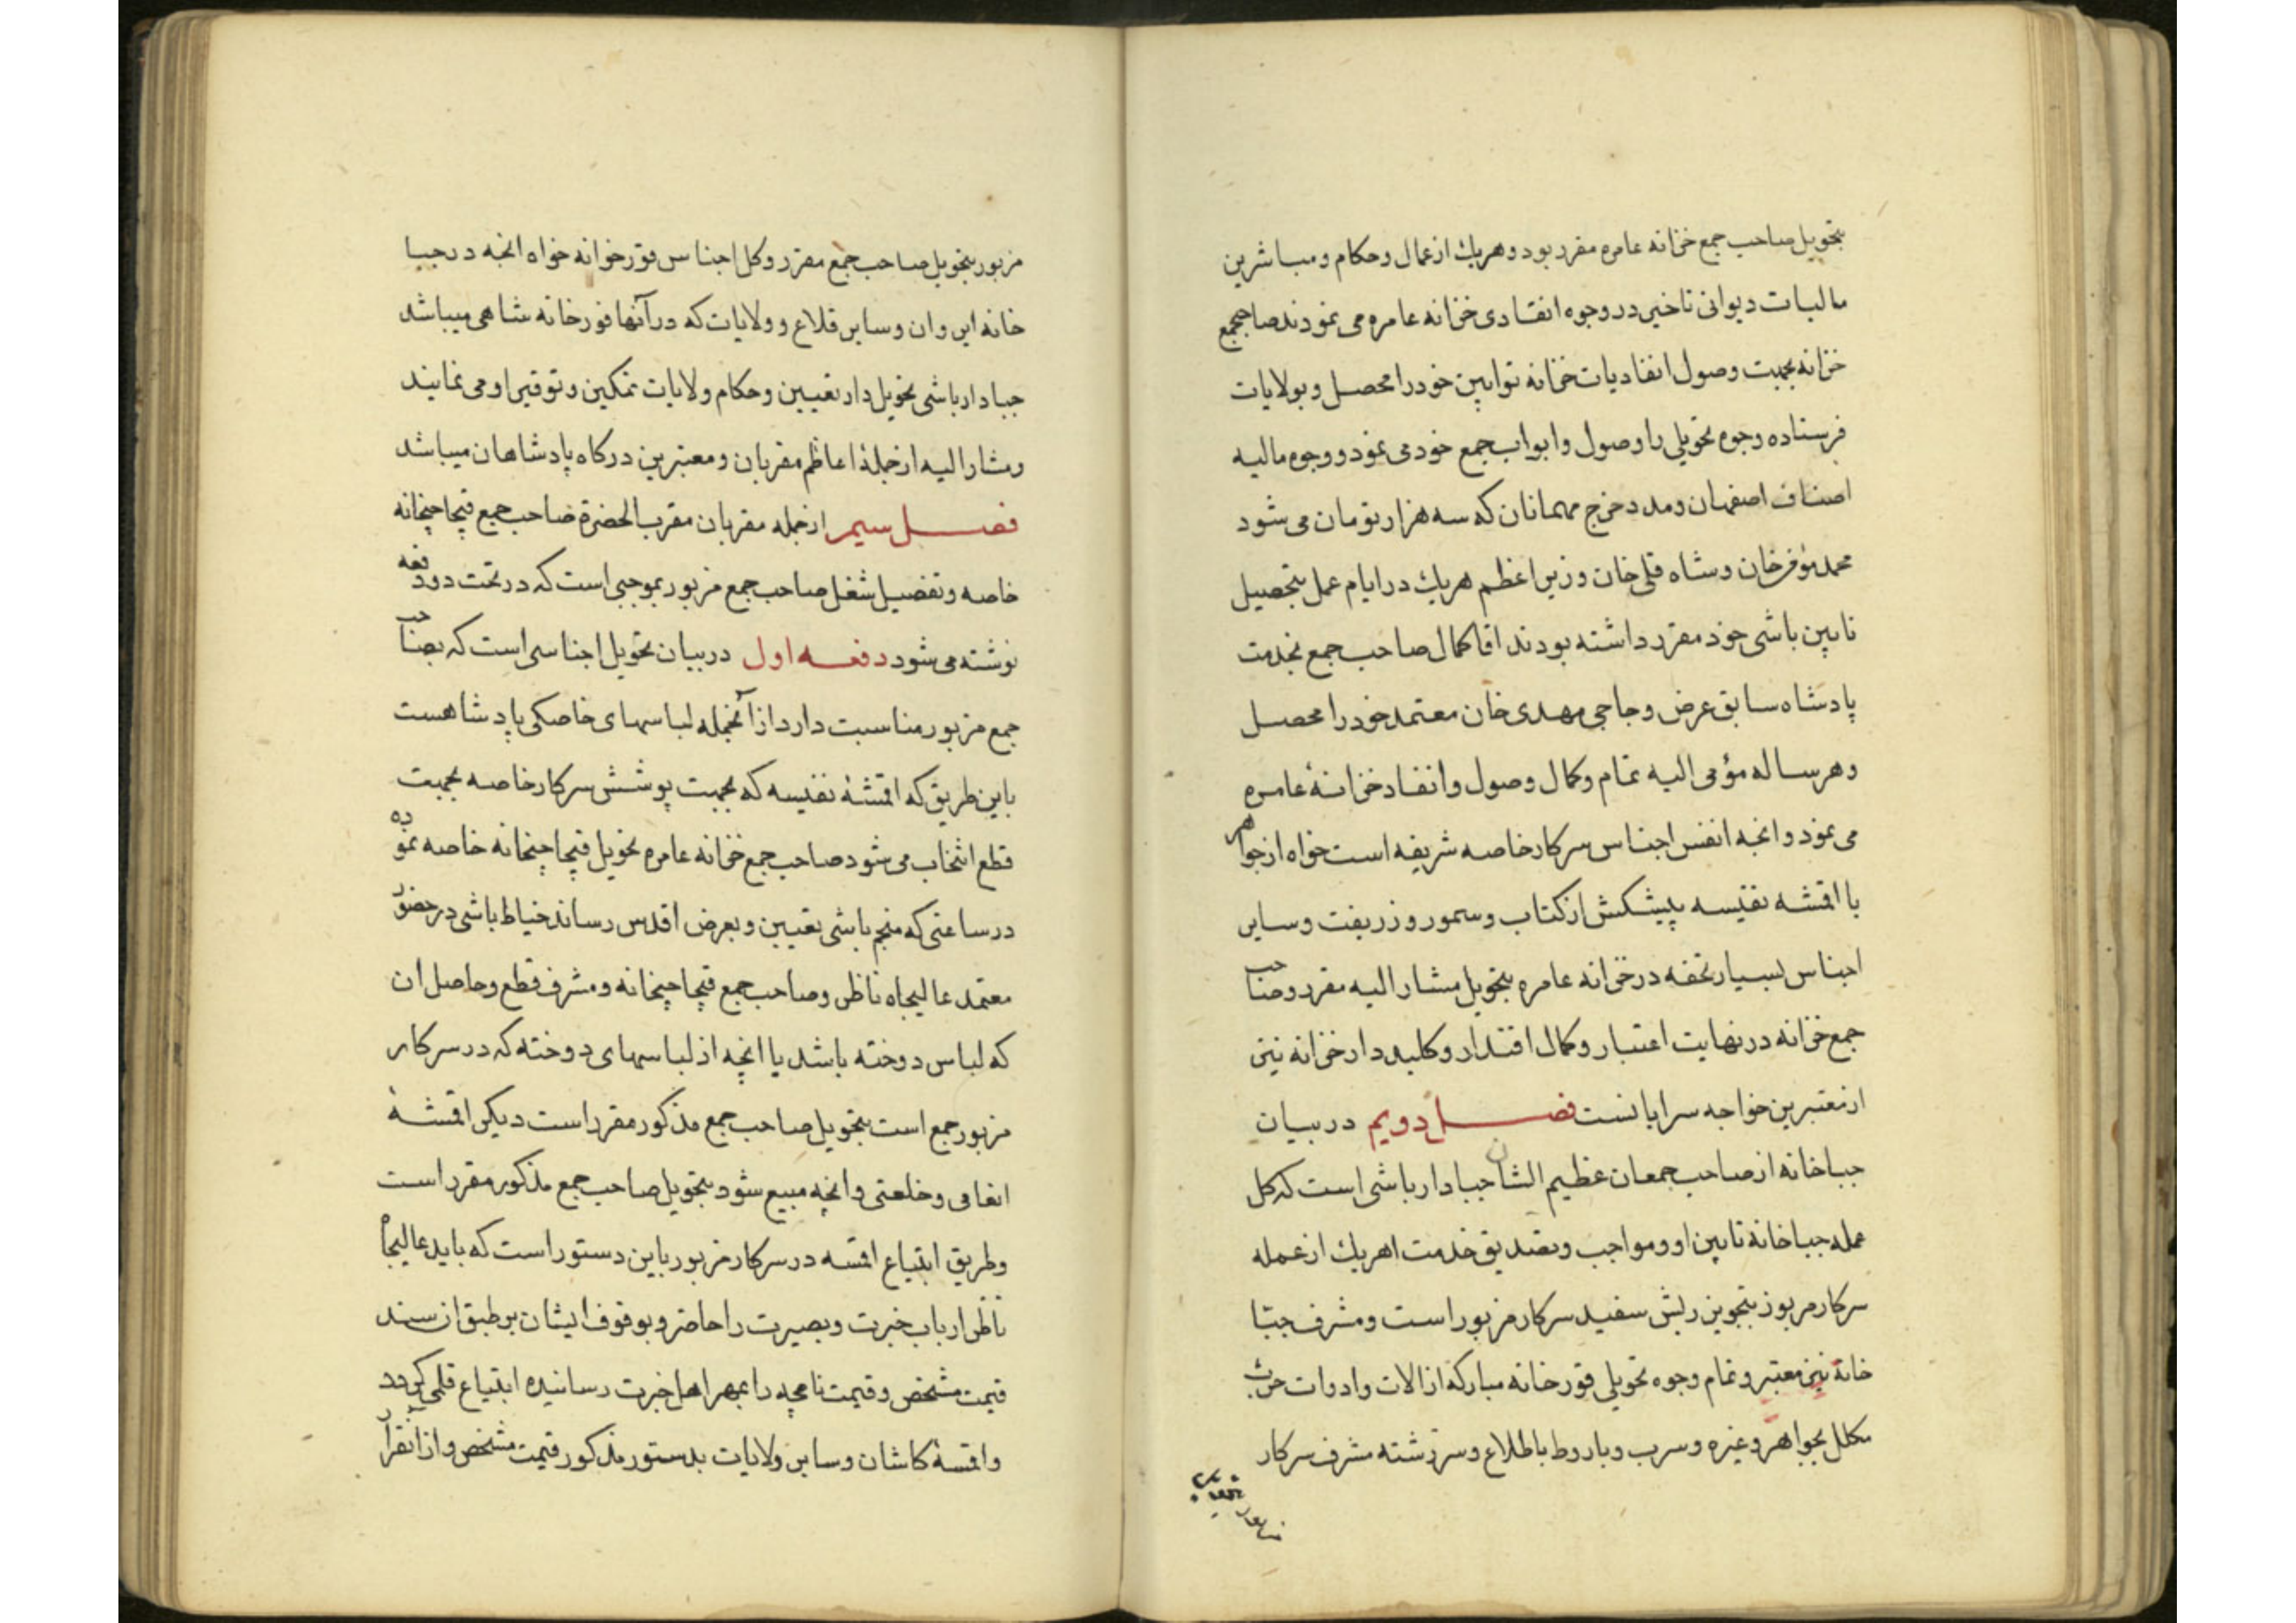 بتحویل صاحب جمع خزانه عامره مقرر بود و هریك از عمال و حکام و مباشرین
مالیات دیوانی تاخیر در وجوه انفادی خزانه عامره می نمودند صاحبجمع
خزانه بجهت وصول انفادیات خزانه توابین خود را محصل و بولایات
فرستاده وجوه تحویلی را وصول و ابواب جمع خود می نمود و وجوه مالیه
اصناف اصفهان و مدد خرج مهمانان که سه هزار تومان می شود
محمد مؤمن خان و شاه قلی خان وزیر اعظم هریك در ایام عمل بتحصیل
تابین باشی خود مقرر داشته بودند اقا کمال صاحب جمع بخدمت
پادشاه سابق عرض و حاجی مهدی خان معتمد خود را محصل
و هر ساله مؤمی الیه تمام و کمال وصول و انفاد خزانهٔ عامره
می نمود و انچه انفس اجناس سرکار خاصه شریفه است خواه از جواهر
یا اقمشه نفیسه پیشکش از کتاب و سمور و زربفت و سایر
اجناس بسیار تحفه در خزانه عامره بتحویل مشار الیه مقرر و صاحب
جمع خزانه در نهایت اعتبار و کمال اقتدار و کلید دار خزانه نیز
از معتبرین خواجه سرایانست فصل دویم در بیان
جباخانه از صاحب جمعان عظیم الشان جبادار باشی است که کل
عمله جباخانه تابین او و مواجب و تصدیق خدمت هریك از عمله
سرکار مزبور بتجویز ریش سفید سرکار مزبور است و مشرف جبّا
خانه نیز معتبر و تمام وجوه تحویلی قورخانه مبارکه از الات و ادوات حرب
مکلل بجواهر و غیره و سرب و باروط باطلاع و سررشته مشرف سرکار
مزبور
مزبور بتحویل صاحب جمع مقرر و کل اجناس قورخانه خواه انچه در جبا
خانه ایروان و سایر قلاع و ولایات که در آنها قورخانه شاهی میباشد
جبادار باشی تحویلدار تعیین و حکام ولایات تمکین و توقیر او می نمایند
و مشار الیه از جملهٔ اعاظم مقربان و معتبرین درکاه پادشاهان میباشد
فصل سیم از جمله مقربان مقرب الحضرة صاحب جمع قیچاچیخانه
خاصه و تفضیل شغل صاحب جمع مزبور بموجبی است که در تحت دو دفعه
نوشته می شود دفعه اول در بیان تحویل اجناسی است که بصاحب
جمع مزبور مناسبت دارد از آنجمله لباسهای خاصکی پادشاهست
باین طریق که اقمشهٔ نفیسه که بجهت پوشش سرکار خاصه بجهت
قطع انتخاب می شود صاحب جمع خزانه عامره تحویل قیچاچیخانه خاصه نموده
در ساعتی که منجم باشی تعیین و بعرض اقدس رساند خیاط باشی در حضور
معتمد عالیجاه ناظر و صاحب جمع قیچاچیخانه و مشرف قطع و حاصل ان
که لباس دوخته باشد یا انچه از لباسهای دوخته که در سرکار
مزبور جمع است بتحویل صاحب جمع مذکور مقرر است دیکر اقمشهٔ
انعامی و خلعتی و انچه مبیع شود بتحویل صاحب جمع مذکور مقرر است
و طریق ابتیاع اقمشه در سرکار مزبور باین دستور است که باید عالیجاه
ناظر ارباب خبرت و بصیرت را حاضر و بوقوف ایشان بر طبق ان سند
قیمت مشخص و قیمت نامچه را بمهر اهل خبرت رسانیده ابتیاع قلمی کردد
و اقمشهٔ کاشان و سایر ولایات بدستور مذکور قیمت مشخص و از انقرار